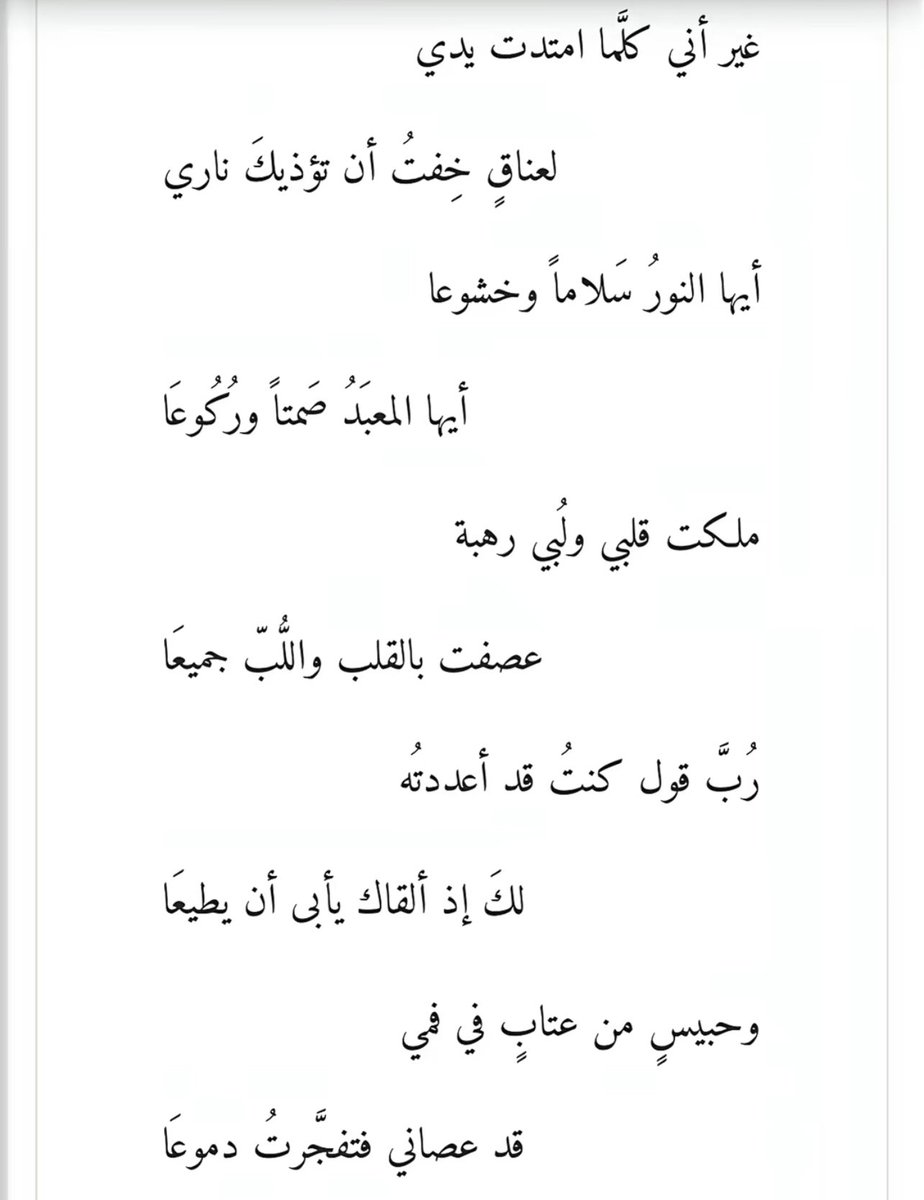 غير أني كلَّما امتدت يدي
لعناقٍ خِفتُ أن تؤذيكَ ناري
أيها النورُ سَلاماً وخشوعا
أيها المعبَدُ صَمتاً ورُكُوعَا
ملكت قلبي ولُبي رهبة
عصفت بالقلب واللُّبّ جميعَا
رُبَّ قول كنتُ قد أعددتُه
لكَ إذ ألقاك يأبى أن يطيعَا
وحبيسٍ من عتابٍ في فمي
قد عصاني فتفجَّرتُ دموعَا